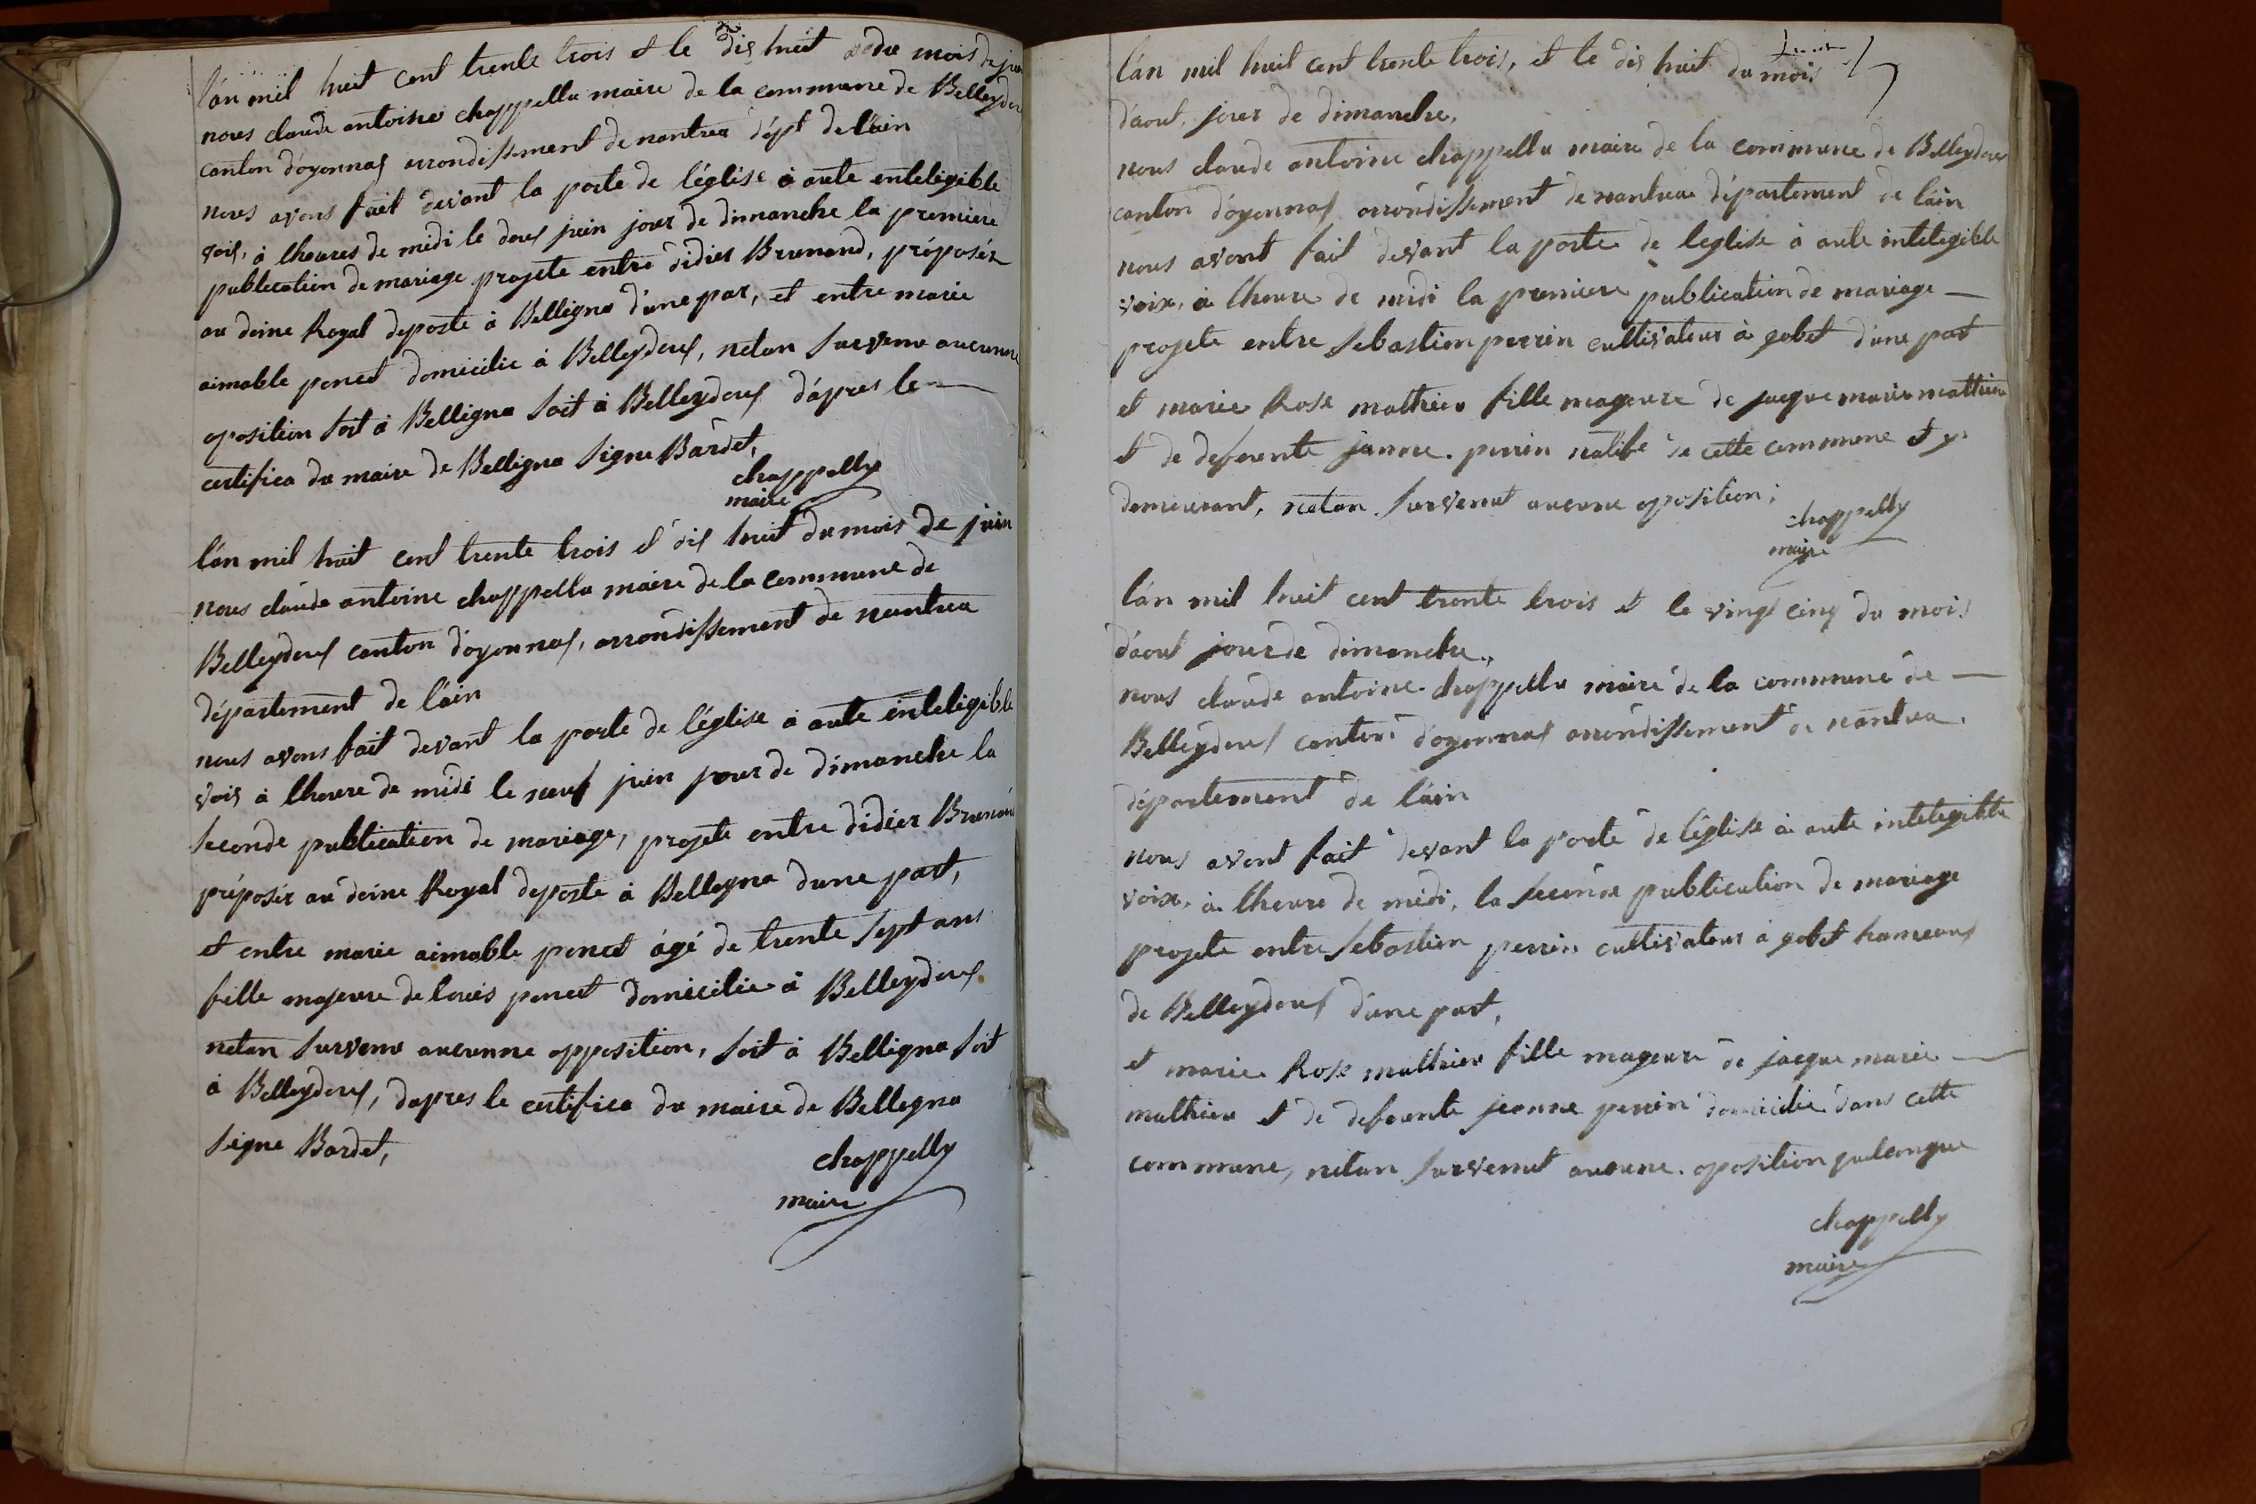 l'an mil huit cent trente trois et le dis huit du mois de juin
nous claude antoine chappellu maire de la commune de Belleydou
canton d'oyonnas arrondissement de nantua dépt de l'ain
nous avons fait devant la porte de l'église à aute enteligible
vois, à lheures de midi le deus juin jour de dimanche la premiere
publication de mariage projete entre didier Brunond, préposér
au doine Royal deposte à Belligna d'une par, et entre marie
aimable poncet domicilie à Belleydous, netan survenu aucunne
oposition soit à Belligna soit à Belleydous d'apres le
certifica du maire de Belligna signe Bardet,
chappelly
maire
l'an mil huit cent trente trois et dis huit du mois de juin
nous claude antoine chappellu maire de la commune de
Belleydous canton d'oyonnas, arrondissement de nantua
département de l'ain
nous avons fait devant la porte de l'église à aute enteligible
vois à lheure de midi le neuf juin jour de dimanche la
seconde publication de mariage, projete entre didier Brunon
préposér au doine Royal deposte à Bellegna dune part,
et entre marie aimable poncet âgé de trente sept ans
fille majeure de louis poncet domicilie à Belleydous
netan survenu aucunne opposition, soit à Belligna soit
à Belleydous, dapres le certifica du maire de Bellegna
signe Bardet,
chappelly
maire
l'an mil huit cent trente trois, et le dis huit du mois
d'aout, jour de dimanche,
nous claude antoine chappellu maire de la commune de Belleydous
canton d'oyonnas arrondissement de nantua département de l'ain
nous avont fait devant la porte de leglise à aute intelegible
voix, à lheure de midi la premiere publication de mariage
projete entre sebastien perrin cultivateur à gobet d'une part
et marie Rose mathieu fille mageure de jacque marie matthieu
et de defeunte jeanne perrin native de cette commune et y
demeurant, netan survenut aucune oposition;
chappelly
maire
l'an mil huit cent trente trois et le vingt cinq du mois
d'aout jour de dimanche,
nous claude antoine chappellu maire de la commune de
Belleydous canton d'oyonnas arrondissement de nantua,
département de l'ain
nous avont fait devant la porte de l'église à aute intelegible
voix, à lheure de midi, la seconde publication de mariage
projete entre sebastien perrin cultivateur à gobet hameaus
de Belleydous d'une part,
et marie Rose mathieu fille mageure de jacque marie
mathieu et de defeunte jeanne perrin domicilie dans cette
commune, netan survenut aucune oposition quelconque
chappelly
maire